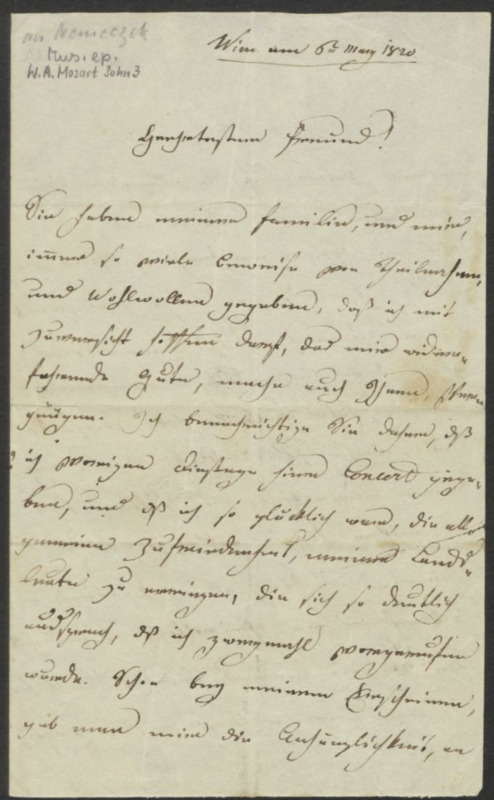 an Niemeczek
Mus. ep.
W. A. Mozart Sohn 3
Wien am 6t März 1820
Hochgeehrtester Freund!
Sie haben meiner Familie, und mir,
immer so viele Beweise von Theilnahme,
und Wohlwollen gegeben, daß ich mit
Zuversicht hoffen darf, das mir wider-
fahrende Gute, mache auch Ihnen, Ver-
gnügen. Ich benachrichtige Sie daher, daß
ich vorigen Dienstag hier Concert gege-
ben, und daß ich so glücklich war, die all-
gemeine Zufriedenheit, meiner Lands-
leute zu erringen, die sich so deutlich
aussprach, daß ich zweymahl vorgerufen
wurde. Schon bey meinem Erscheinen,
gab man mir die Anhänglichkeit, an